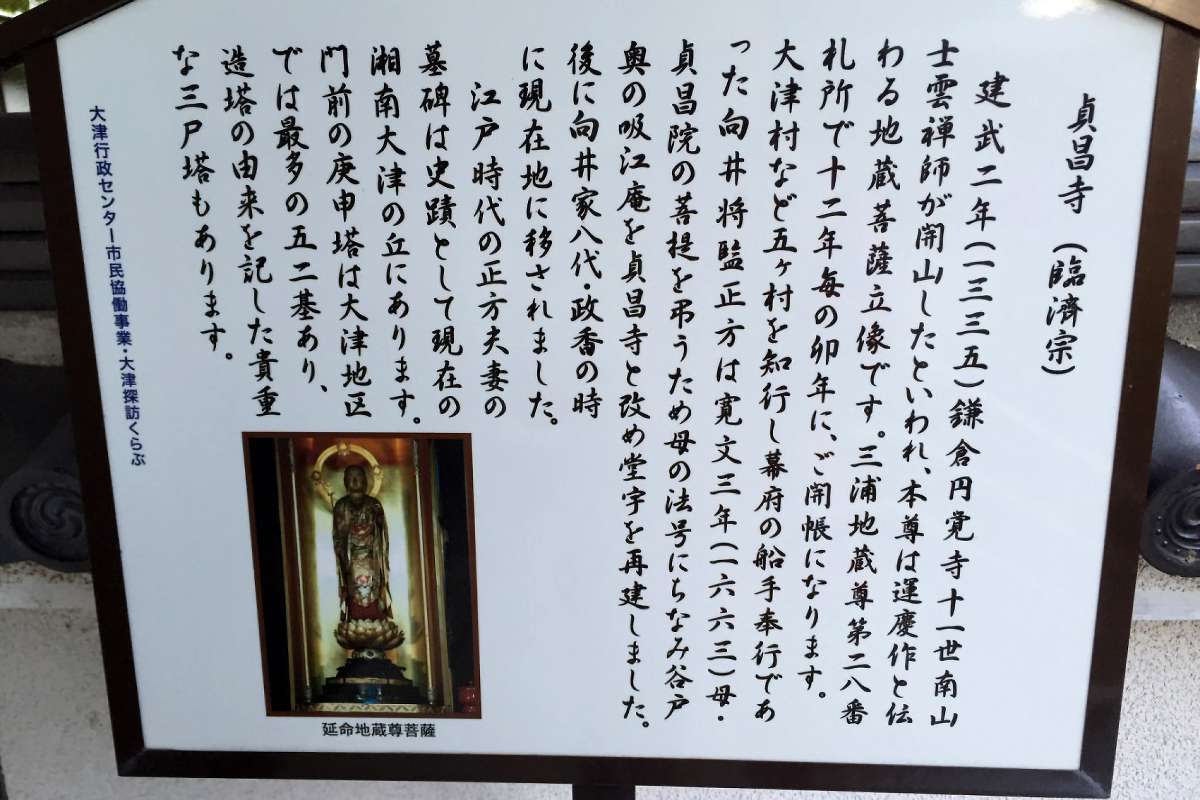 貞昌寺（臨済宗）
建武二年（一三三五）鎌倉円覚寺十一世南山
士雲禅師が開山したといわれ、本尊は運慶作と伝
わる地蔵菩薩立像です。三浦地蔵尊第二八番
札所で十二年毎の卯年に、ご開帳になります。
大津村など五ヶ村を知行し幕府の船手奉行であ
った向井将監正方は寛文三年（一六六三）母・
貞昌院の菩提を弔うため母の法号にちなみ谷戸
奥の吸江庵を貞昌寺と改め堂宇を再建しました。
後に向井家八代・政香の時
に現在地に移されました。
江戸時代の正方夫妻の
墓碑は史蹟として現在の
湘南大津の丘にあります。
門前の庚申塔は大津地区
では最多の五二基あり、
造塔の由来を記した貴重
な三尸塔もあります。
大津行政センター市民協働事業・大津探訪くらぶ
延命地蔵尊菩薩